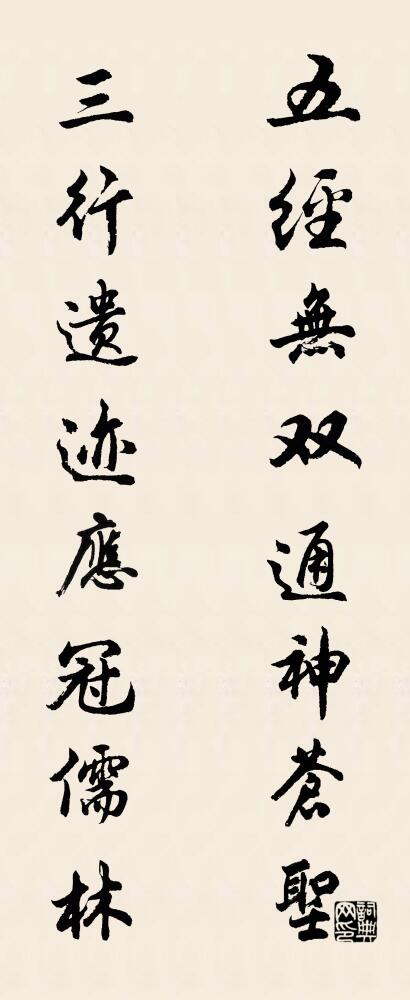 五經無双通神蒼聖
三行遺迹應冠儒林
詞典网印